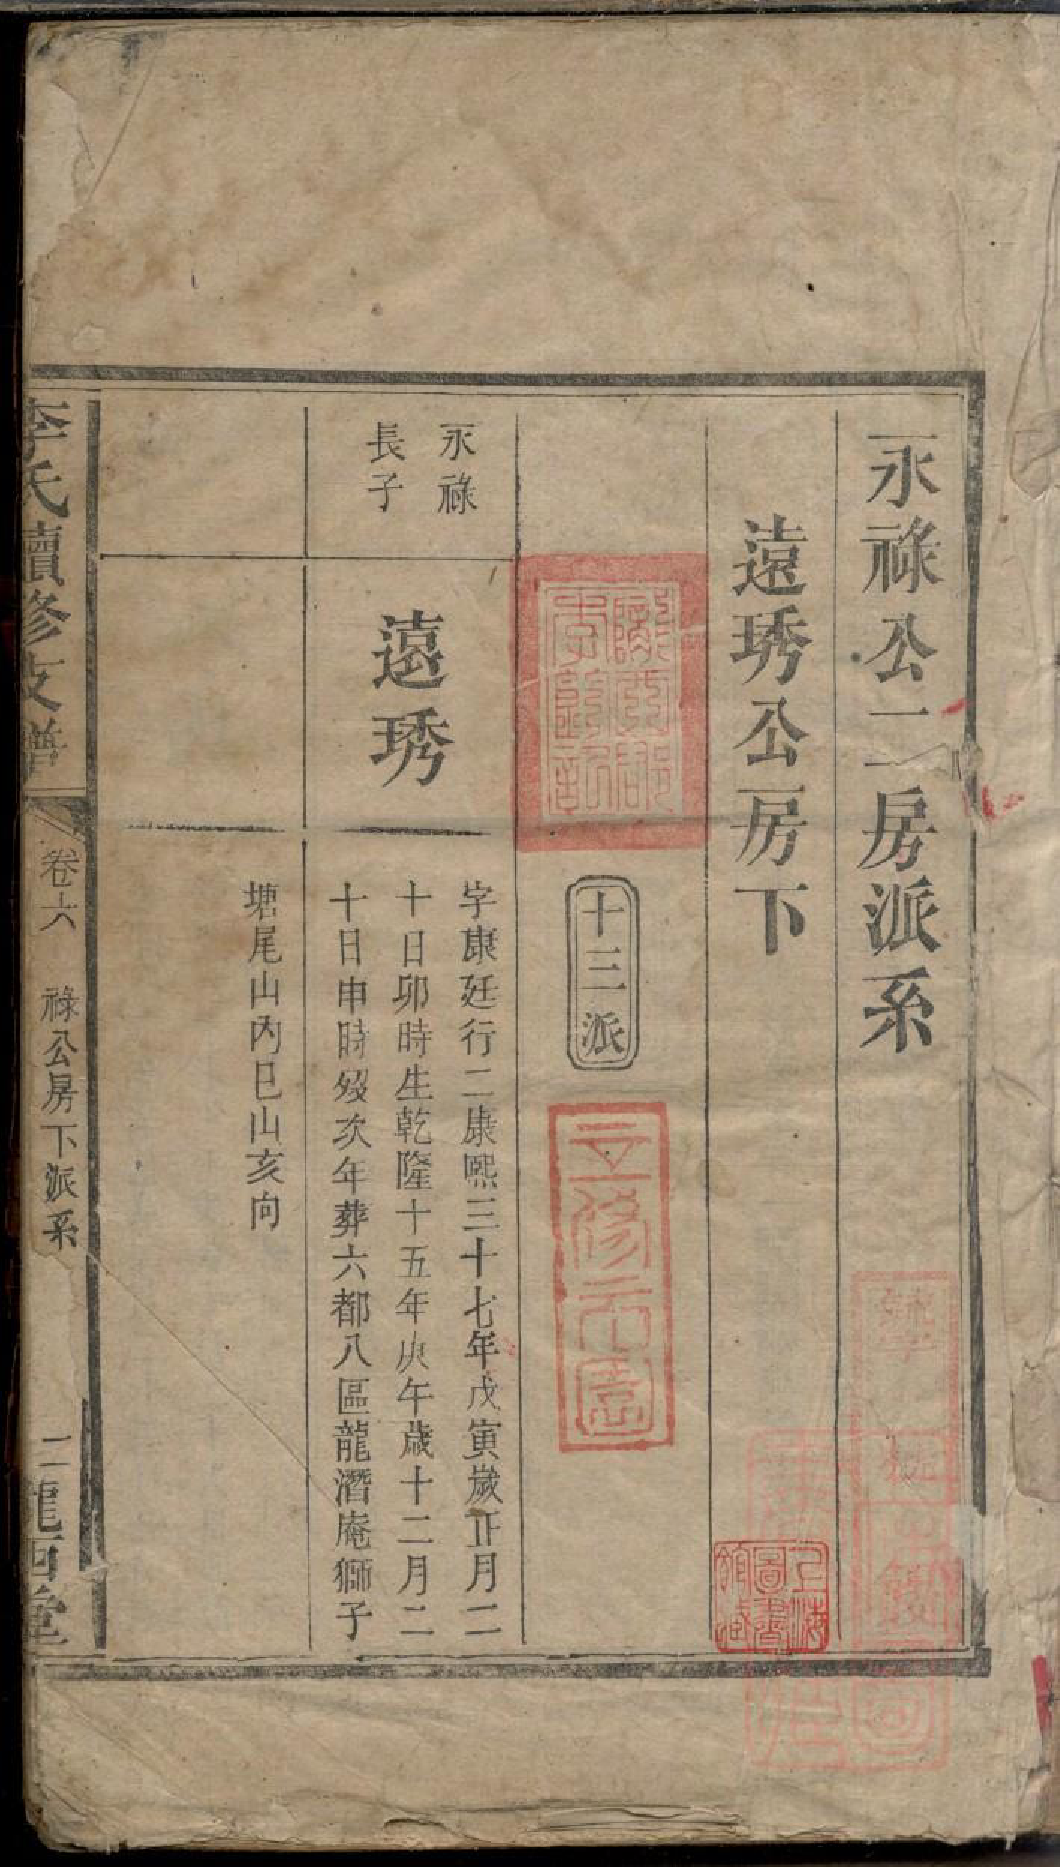 永祿公二房派系
遠琇公房下
十三派
永祿
長子
遠琇
字康廷行二康熙三十七年戊寅歲正月二
十日卯時生乾隆十五年庚午歲十二月二
十日申時歿次年葬六都八區龍潛庵獅子
塘尾山內巳山亥向
李氏續修支譜
卷六
祿公房下派系
二
龍西堂
隴西郡
李
上海
圖書
館藏